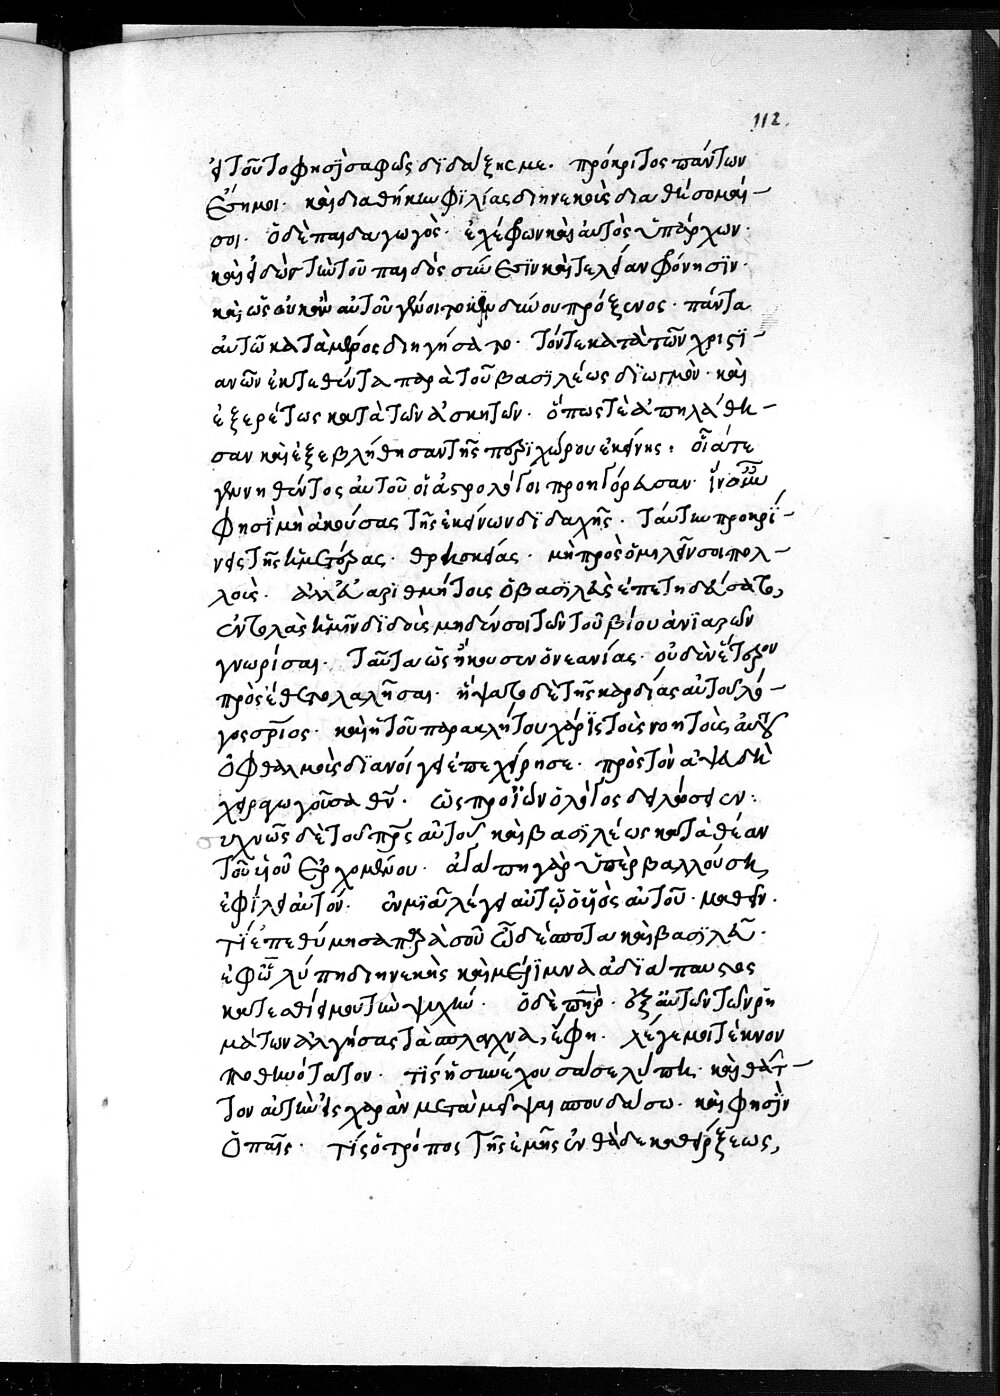 112
εἰ τοῦτο φησὶ σαφῶς διδάξῃς με. πρόκριτος πάντων
ἔσῃ μοι. καὶ διαθήκην φιλίας διηνεκοῦς διαθήσομαί
σοι. ὁ δὲ παιδαγωγὸς. ἐχέφρων καὶ αὐτὸς ὑπάρχων.
καὶ εἰδὼς τὴν τοῦ παιδὸς σύνεσιν καὶ τελείαν φρόνησιν.
καὶ ὡς οὐκ ἂν αὐτοῦ γένοιτο κινδύνου πρόξενος. πάντα
αὐτῷ κατὰ μέρος διηγήσατο. τόν τε κατὰ τῶν χριστι
ανῶν ἐκτεθέντα παρὰ τοῦ βασιλέως διωγμὸν. καὶ
ἐξερέτως κατὰ τῶν ἀσκητῶν. ὅπως τὲ ἀπηλάθη
σαν καὶ ἐξεβλήθησαν τῆς περιχώρου ἐκείνης. οἷά τε
γεννηθέντος αὐτοῦ οἱ ἀστρολόγοι προηγόρευσαν. ἵν' οὖν
φησὶ μὴ ἀκούσας τῆς ἐκείνων διδαχῆς. ταύτην προκρί
νεις τῆς ἡμετέρας. θρησκείας. μὴ προσομιλεῖν σοι πολ
λοὺς. ἀλλ' εὐαριθμήτοις ὁ βασιλεὺς ἐπετηδεύσατο,
ἐντολὰς ἡμῖν διδοὺς μηδέν σοι τῶν τοῦ βίου ἀνιαρῶν
γνωρίσαι. ταῦτα ὡς ἤκουσεν ὁ νεανίας. οὐδὲν ἕτερον
προσέθετο λαλῆσαι. ἥψατο δὲ τῆς καρδίας αὐτοῦ λό
γος σριος. καὶ ἡ τοῦ παρακλήτου χάρις τοὺς νοητοὺς αὐτοῦ
ὀφθαλμοὺς διανοίγειν ἐπεχείρησε. πρὸς τὸν ἀψευδῆ
χειραγωγοῦσα θν. ὡς προϊὼν ὁ λόγος δηλώσειεν:
συχνῶς δὲ τοῦ πρς αὐτοῦ καὶ βασιλέως κατὰ θέαν
τοῦ υἱοῦ ἐρχομένου. ἀγάπη γὰρ ὑπερβαλλούσῃ,
ἐφίλει αὐτόν. ἐν μιᾷ λέγει αὐτῷ ὁ υἱὸς αὐτοῦ. μαθεῖν.
τὶ ἐπεθύμησα παρὰ σοῦ ὦ δέσποτα καὶ βασιλεῦ.
ἐφ' ᾧ λύπη διηνεκὴς καὶ μέριμνα ἀδιάπαυστος
κατεσθίει μου τὴν ψυχήν. ὁ δὲ πηρ. ἐξ αὐτῶν τῶν ρη
μάτων ἀλγήσας τὰ σπλάγχνα, ἔφη. λέγε μοι τέκνον
ποθεινότατον. τίς ἡ συνέχουσά σε λύπη. καὶ θᾶτ
τον αὐτὴν εἰς χαρὰν μεταμεῖψαι σπουδάσω. καὶ φησὶν
ὁ παῖς. τίς ὁ τρόπος τῆς ἐμῆς ἐνθάδε καθείρξεως,